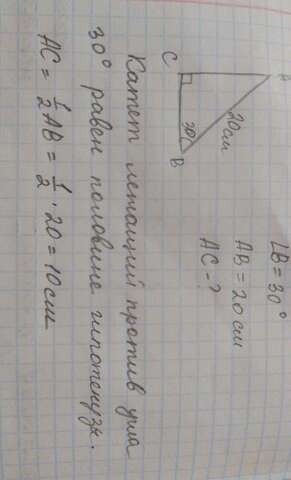 ∠B = 30°
AB = 20 см
AC - ?
A
C
B
20 см
30°
Катет лежащий против угла
30° равен половине гипотенузы.
AC = 1/2 AB = 1/2 · 20 = 10 см